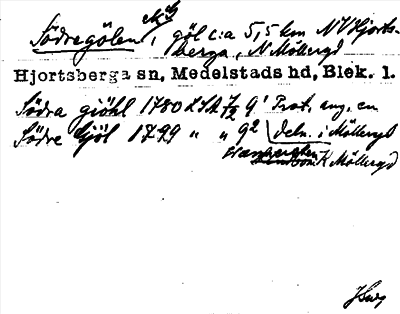 Södregölen, göl c:a 5,5 km NV Hjorts-
berga, N Möllergd
Hjortsberga sn, Medelstads hd, Blek. l.
Södra giöhl 1780 LSA 9¹ Prot. ang. en
Södre Göl 1799 " " 9² deln. i Möllergd
K Möllergd